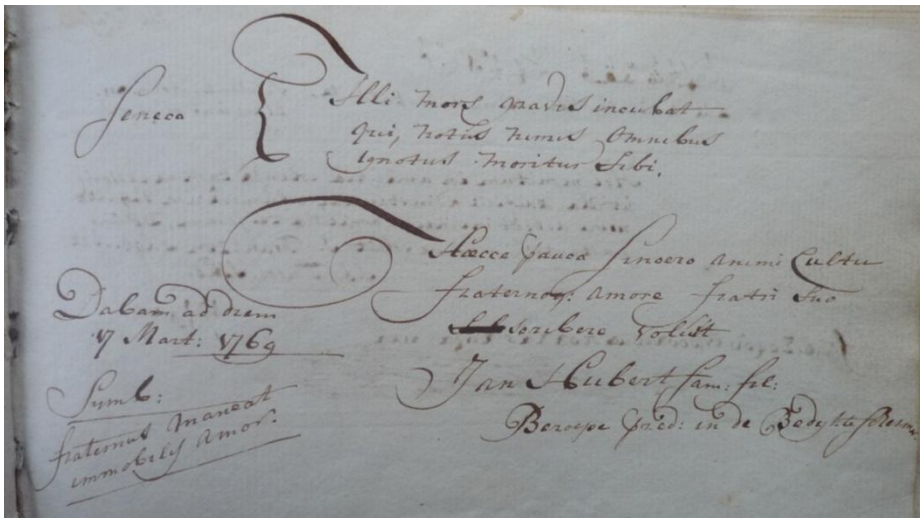 Seneca
Illi mors gravis incubat
qui, notus nimis omnibus
ignotus moritur sibi.
Hæcce pauca sincero animi cultu
fraternoq: amore fratri suo
scribere voluit
Jan Hubert Sam: fil:
Beroepe Pred: in de
Dabam ad diem
17 Mart: 1769
Symb:
fraternus maneat
immobilis amor.